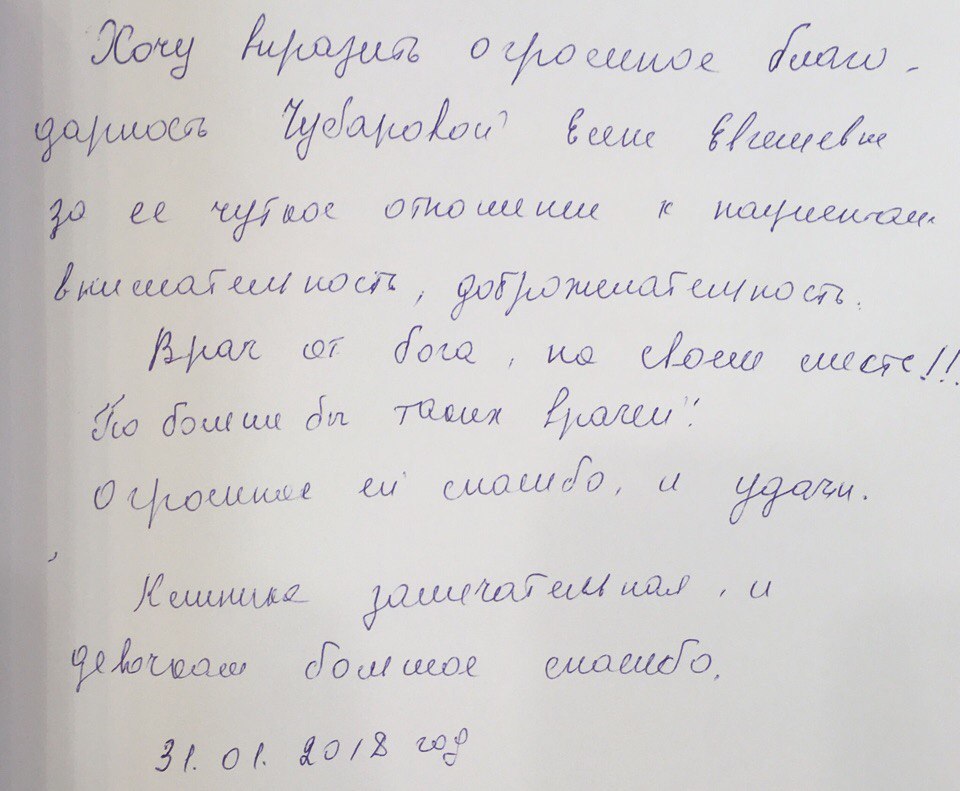 Хочу виразить огромное благо-
дарность Чубаровой Елене Евгеневне
за ее чуткое отношение к пациентам
внимательность, доброжелательность.
Врач от бога, на своем месте!!!
По больше бы таких врачей!
Огромное ей спасибо, и удачи.
Клиника замечательная, и
девочкам большое спасибо.
31.01.2018 год